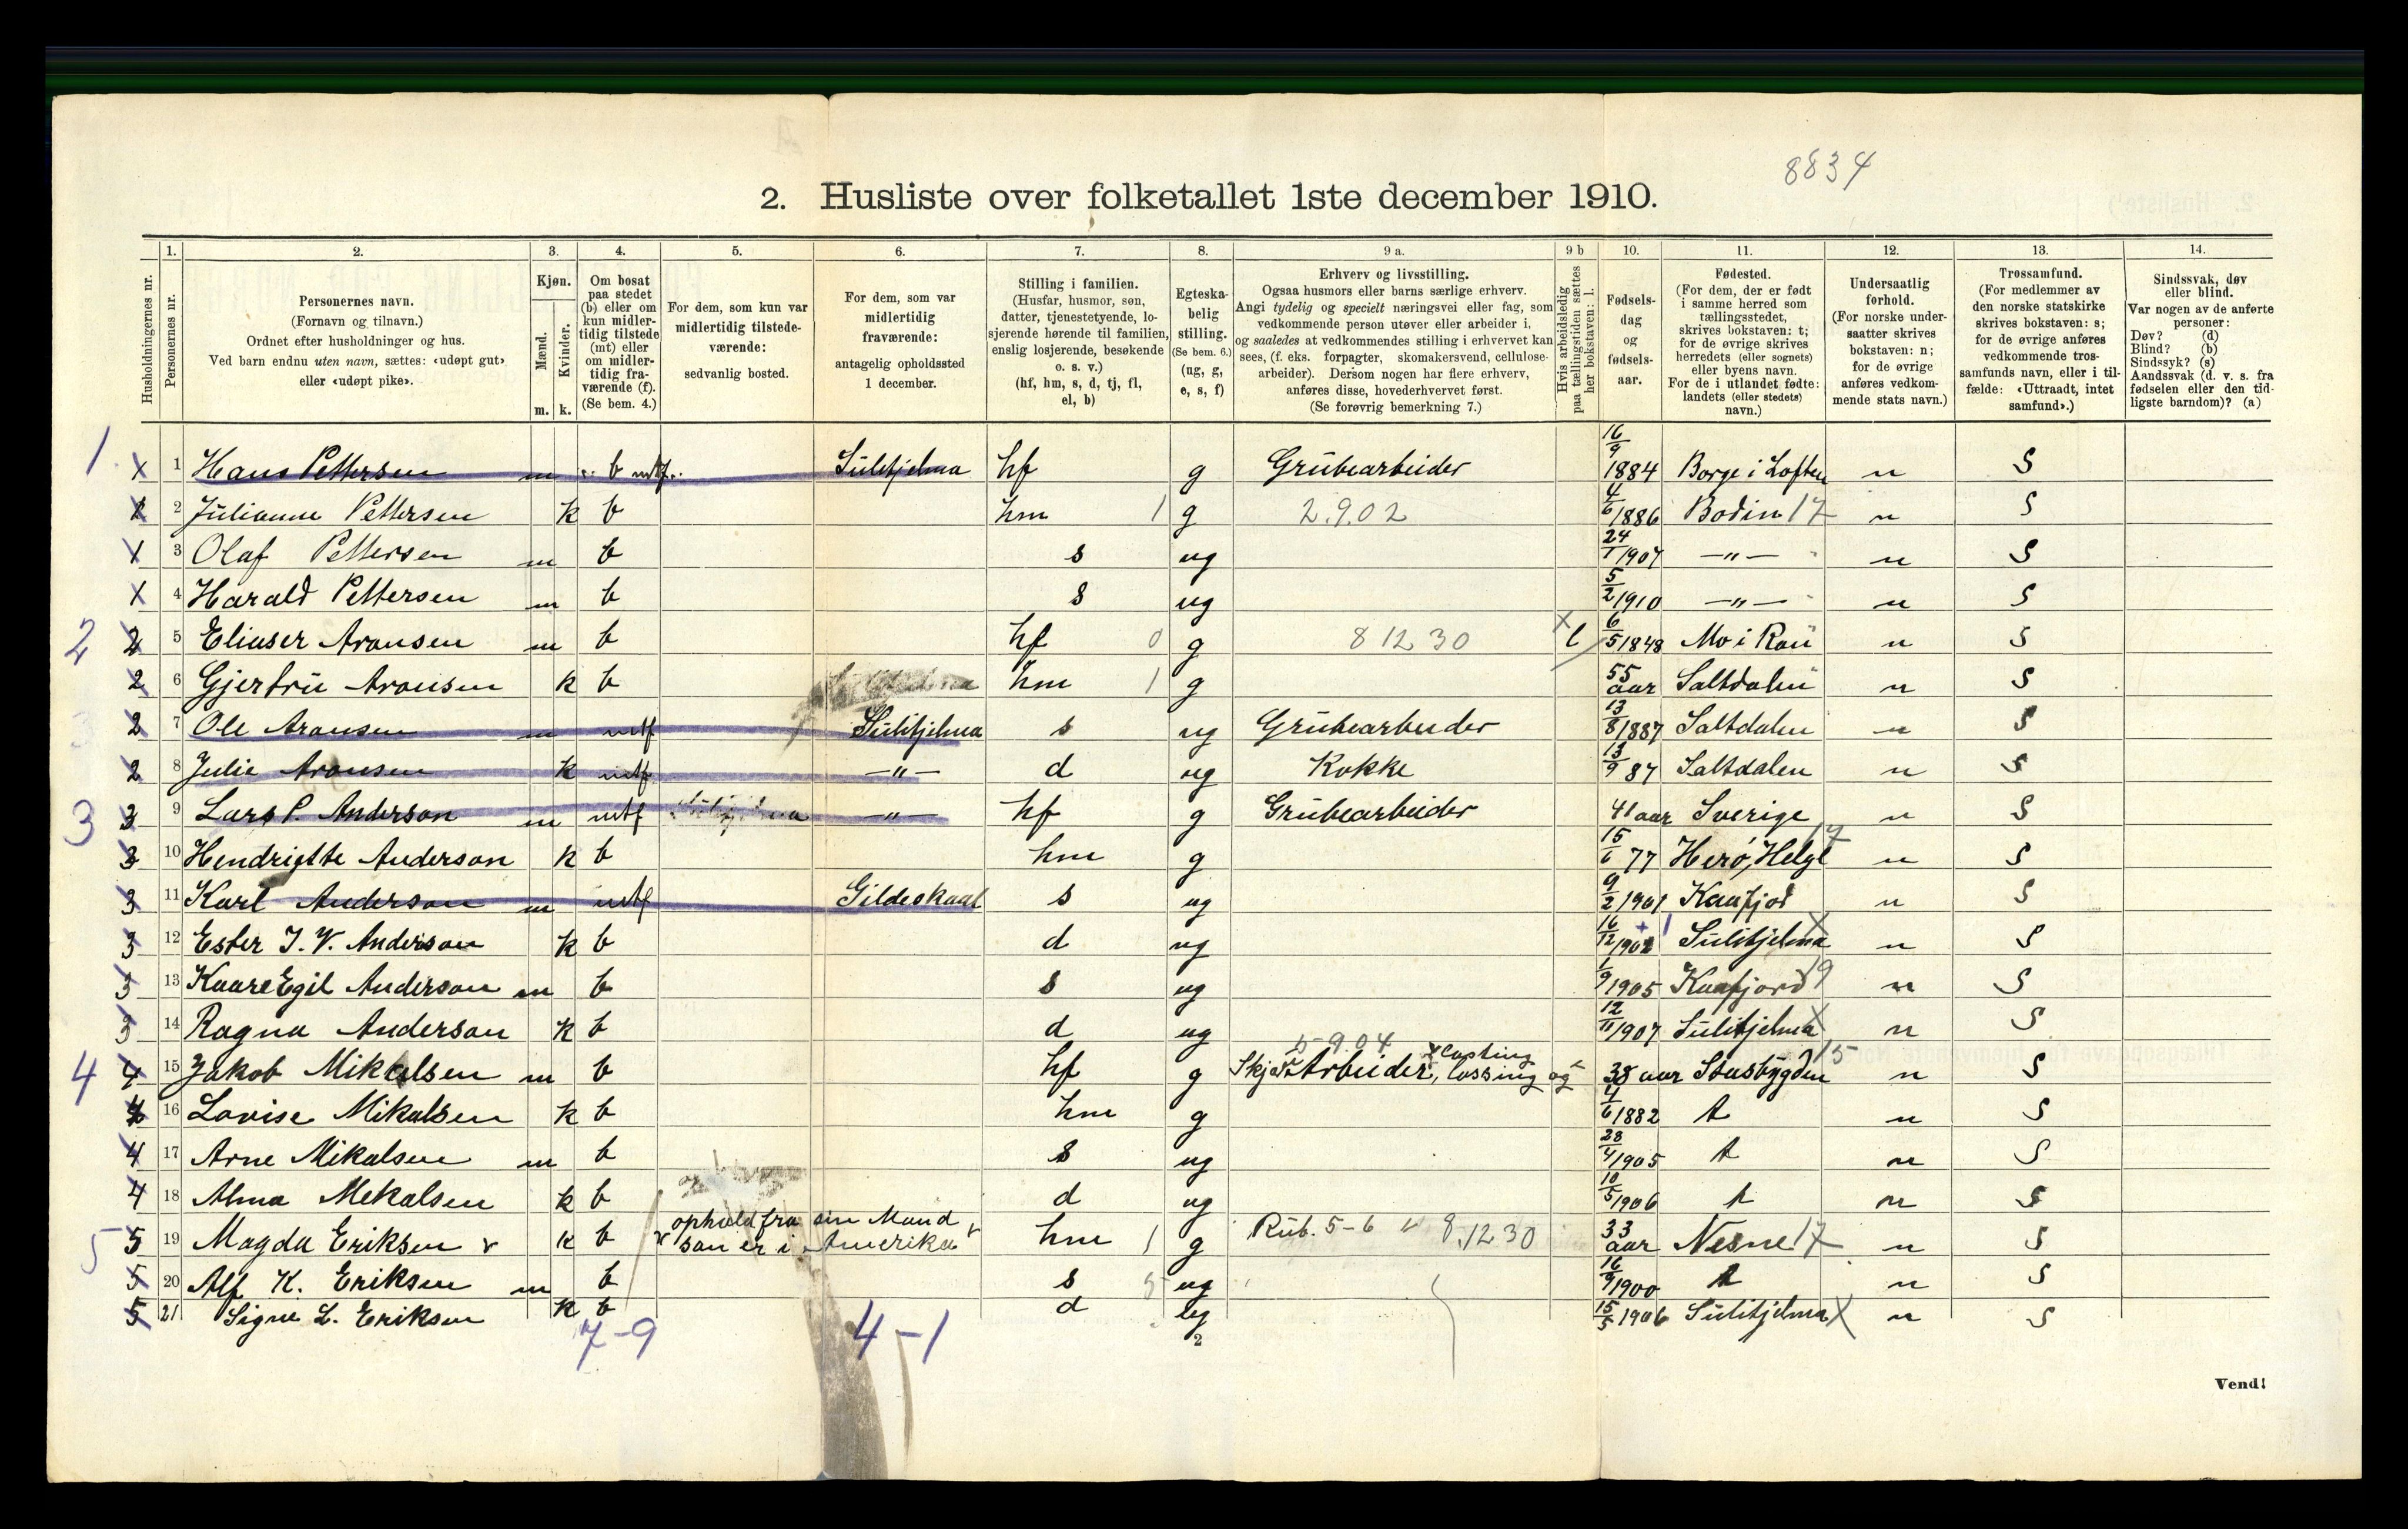 8834
2. Husliste over folketallet 1ste december 1910.
Husholdningernes nr.
1. Personernes nr.
2. Personernes navn. (Fornavn og tilnavn.) Ordnet efter husholdninger og hus. Ved barn endnu uten navn, sættes: «udøpt gut» eller «udøpt pike».
3. Kjøn. Mænd. m. Kvinder. k.
4. Om bosat paa stedet (b) eller om kun midlertidig tilstede (mt) eller om midlertidig fraværende (f). (Se bem. 4.)
5. For dem, som kun var midlertidig tilstedeværende: sedvanlig bosted.
6. For dem, som var midlertidig fraværende: antagelig opholdssted 1 december.
7. Stilling i familien. (Husfar, husmor, søn, datter, tjenestetyende, losjerende hørende til familien, enslig losjerende, besøkende o. s. v.) (hf, hm, s, d, tj, fl, el, b)
8. Egteskabelig stilling. (Se bem. 6.) (ug, g, e, s, f)
9 a. Erhverv og livsstilling. Ogsaa husmors eller barns særlige erhverv. Angi tydelig og specielt næringsvei eller fag, som vedkommende person utøver eller arbeider i, og saaledes at vedkommendes stilling i erhvervet kan sees, (f. eks. forpagter, skomakersvend, cellulosearbeider). Dersom nogen har flere erhverv, anføres disse, hovederhvervet først. (Se forøvrig bemerkning 7.)
9 b Hvis arbeidsledig paa tællingstiden sættes her bokstaven: l.
10. Fødselsdag og fødselsaar.
11. Fødested. (For dem, der er født i samme herred som tællingsstedet, skrives bokstaven: t; for de øvrige skrives herredets (eller sognets) eller byens navn. For de i utlandet fødte: landets (eller stedets) navn.)
12. Undersaatlig forhold. (For norske undersaatter skrives bokstaven: n; for de øvrige anføres vedkommende stats navn.)
13. Trossamfund. (For medlemmer av den norske statskirke skrives bokstaven: s; for de øvrige anføres vedkommende trossamfunds navn, eller i tilfælde: «Uttraadt, intet samfund».)
14. Sindssvak, døv eller blind. Var nogen av de anførte personer: Døv? (d) Blind? (b) Sindssyk? (s) Aandssvak (d. v. s. fra fødselen eller den tidligste barndom)? (a)
1. 1 Hans Pettersen m b mtf. Sulitjelma hf g Grubearbeider 16/9 1884 Borge i Loften n S
1 2 Julianne Pettersen k b hm 1 g 2.9.02 4/6 1886 Bodin 17 n S
1 3 Olaf Pettersen m b s ug 24/1 1907 —"— n S
1 4 Harald Pettersen m b s ug 5/2 1910 —"— n S
2 2 5 Eliaser Aronsen m b hf 0 g 8 12 30 l 6/5 1848 Mo i Ran n S
2 6 Gjertru Aronsen k b hm 1 g 55 aar Saltdalen n S
2 7 Ole Aronsen m mtf Sulitjelma s ug Grubearbeider 13/8 1887 Saltdalen n S
2 8 Julie Aronsen k mtf —"— d ug Kokke 13/9 87 Saltdalen n S
3 3 9 Lars P. Anderson m mtf —"— hf g Grubearbeider 41 aar Sverige n S
3 10 Hendrigtte Anderson k b hm g 15/6 77 Herø, Helgl 17 n S
3 11 Karl Anderson m mtf Gildeskaal s ug 9/2 1901 Kaafjod n S
3 12 Ester J. V. Anderson k b d ug 16/12 1902 Sulitjelma n S
3 13 Kaare Egil Anderson m b s ug 1/9 1905 Kaafjord 19 n S
3 14 Ragna Anderson k b d ug 12/11 1907 Sulitjelma n S
4 4 15 Jakob Mikalsen m b hf g 5-9.04 Arbeider, lossing og lasting 38 aar Stusbygden 15 n S
4 16 Lovise Mikalsen k b hm g 4/6 1882 t n S
4 17 Arne Mikalsen m b s ug 28/4 1905 t n S
4 18 Alma Mekalsen k b d ug 10/5 1906 t n S
5 5 19 Magda Eriksen k b ophold fra sin Mand son er i Amerika hm 1 g Rub. 5-6 8.12 30 33 aar Nesne 17 n S
5 20 Alf K. Eriksen m b s 5 ug 16/9 1900 t n S
5 21 Signe L. Eriksen k b d ug 15/5 1906 Sulitjelma n S
7-9 4-1 2
Vend!